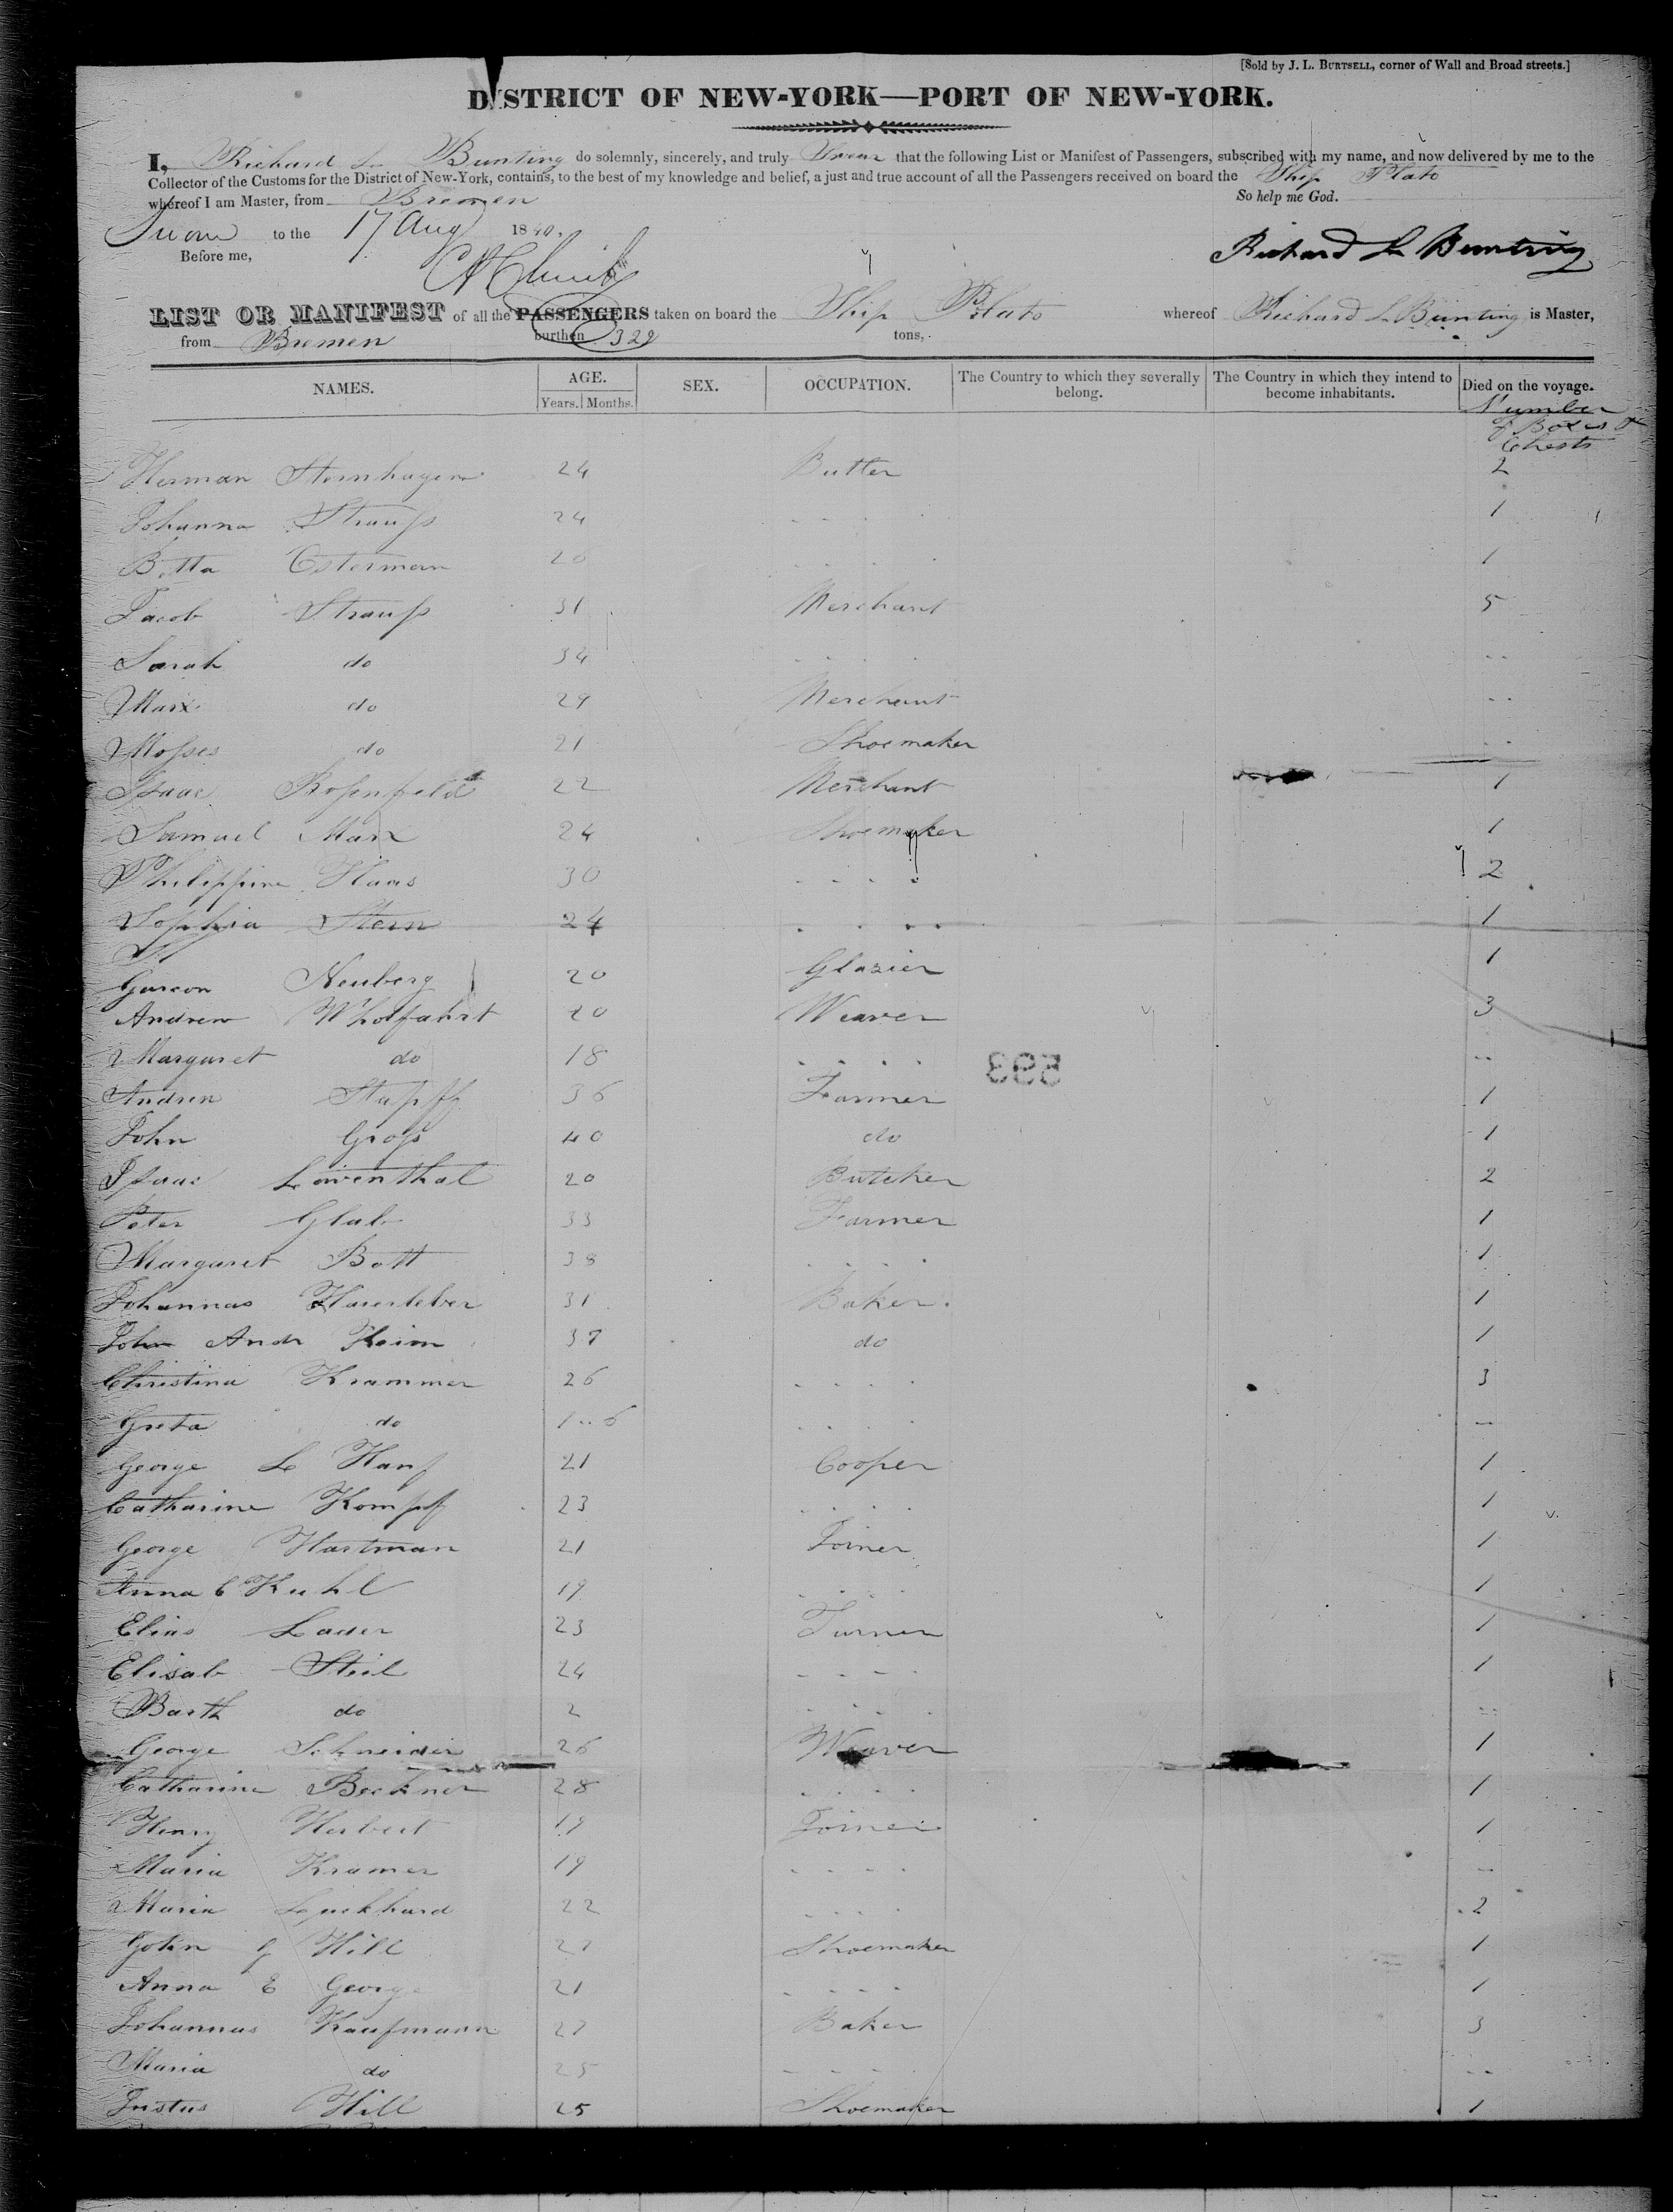 [Sold by J. L. BURTSELL, corner of Wall and Broad streets.]
DISTRICT OF NEW-YORK—PORT OF NEW-YORK.
I, Richard L Bunting do solemnly, sincerely, and truly Swear that the following List or Manifest of Passengers, subscribed with my name, and now delivered by me to the
Collector of the Customs for the District of New-York, contains, to the best of my knowledge and belief, a just and true account of all the Passengers received on board the Ship Plato
whereof I am Master, from Bremen So help me God.
Sworn to the 17 Aug 1840.
Before me,
Richard L Bunting
LIST OR MANIFEST of all the PASSENGERS taken on board the Ship Plato whereof Richard L Bunting is Master,
from Bremen burthen 329 tons,
NAMES. AGE. Years. Months. SEX. OCCUPATION. The Country to which they severally belong. The Country in which they intend to become inhabitants. Died on the voyage.
Number
of Boxes &
Chests
Herman Sternhagen 24 Butler 2
Johanna Strauſs 24 - - - - 1
Betta Osterman 20 - - - - 1
Jacob Strauſs 31 Merchant 5
Sarah do 34 - - - - --
Marx do 29 Merchant --
Moſses do 21 Shoemaker --
Isaac Roſenfeld 22 Merchant 1
Samuel Marx 24 Shoemaker 1
Philippine Haas 30 - - - - 2
Sophia Stern 24 - - - - 1
Garson Neuberg 20 Glazier 1
Andrew Wholfahrt 20 Weaver 3
Margaret do 18 - - - - --
593
Andrew Stapff 36 Farmer 1
John Groſs 40 do 1
Isaac Lowenthal 20 Butcher 2
Peter Glab 33 Farmer 1
Margaret Bott 38 - - - - 1
Johannas Haersleber 31 Baker. 1
John Andr Heim 37 do 1
Christina Krammer 26 - - - - 3
Greta do 1..6 - - - - --
George L Hanf 21 Cooper 1
Catharine Kompf 23 - - - - 1
George Hartman 21 Joiner 1
Anna C Kuhl 19 - - - - 1
Elias Lader 23 Turner 1
Elisab Steil 24 - - - - 1
Barth do 2 - - - - --
George Schneider 26 Weaver 1
Catharine Beckner 28 - - - - 1
Henry Herbert 19 Joiner 1
Maria Kramer 19 - - - - --
Maria Luckhard 22 - - - - 2
John G Hill 27 Shoemaker 1
Anna E George 21 - - - - 1
Johannas Kaufmann 27 Baker 3
Maria do 25 - - - - --
Justus Hill 25 Shoemaker 1